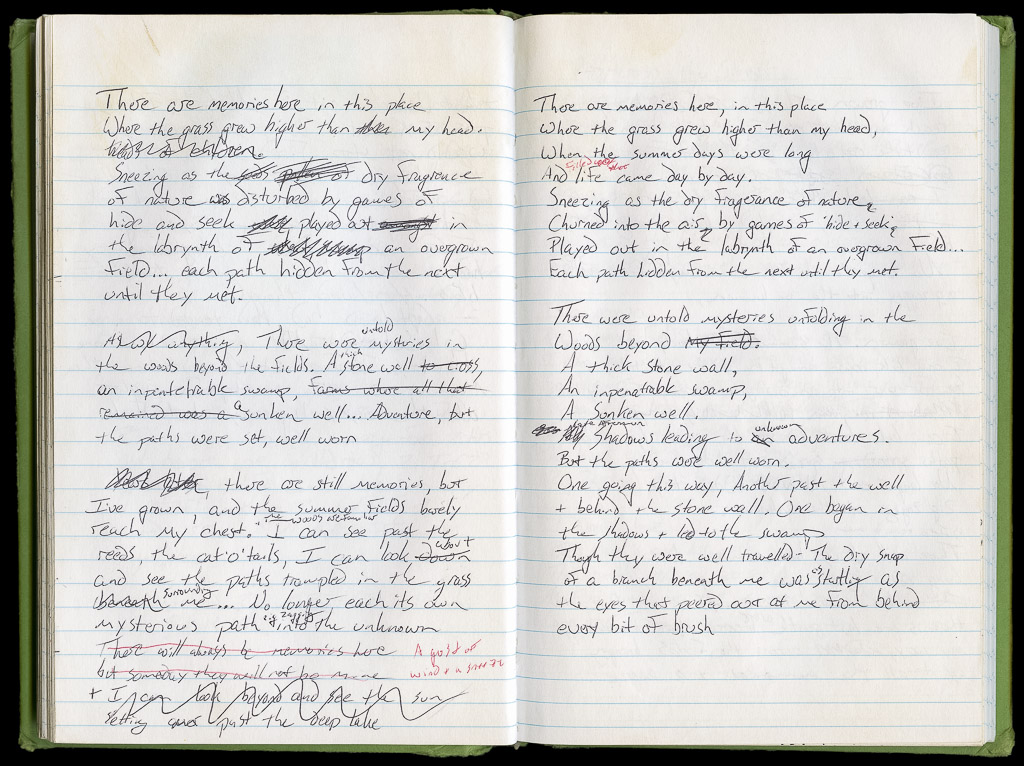 There are memories here in this place
Where the grass grew higher than my head.
heads of children.
Sneezing as the dry fragrence
of nature was disturbed by games of
hide and seek played out in
the labrynth of an overgrown
field... each path hidden from the next
until they met.
untold
anything, There were mysteries in
the woods beyond the fields. A stone wall to cross,
an inpentetrable swamp, farms where all that
remained was a a sunken well... Adventure, but
the paths were set, well worn
, there are still memories, but
I've grown, and the summer fields barely
reach my chest. I can see past the
about
reeds, the cat'o'tails, I can look down
and see the paths trampled in the grass
surrounding
beneath me... No longer each its own
zig zagging
mysterious path into the unknown
There will always be memories here
but someday they will not be mine
A gust of
wind + a sneeze
+ I can look beyond and see the sun
setting over past the deep lake
There are memories here, in this place
Where the grass grew higher than my head,
When the summer days were long
And life came day by day.
Sneezing as the dry fragerance of nature,
Churned into the air, by games of 'hide + seek,'
Played out in the labrynth of an overgrown field...
Each path hidden from the next until they met.
There were untold mysteries unfolding in the
Woods beyond My Field.
A thick stone wall,
An inpenatrable swamp,
A, Sunken well.
unknown
Shadows leading to adventures.
But the paths were well worn.
One going this way, Another past the well
+ behind the stone wall. One began in
the shadows + led to the swamp
Though they were well travelled - The dry snap
of a branch beneath me was as startling as
the eyes that peered out at me from behind
every bit of brush